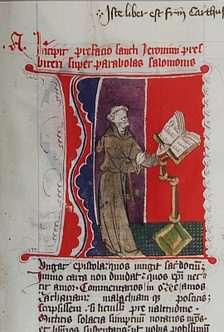 Iste liber est frm Carthus
Incipit prefacio sancti Jeronimi pres
biteri super parabolas salomonis
Iungat epistola quos iungit sacerdotium
immo carta non diuidat quos xpi nec
tit amor. Commentarios in osee amos
zachariam malachiam qs poscitis
scripsissem si licuisset pre valitudine
Mittitis solacia sumptuum notarios nros
et librarios sustentatis ut vobis potissimum